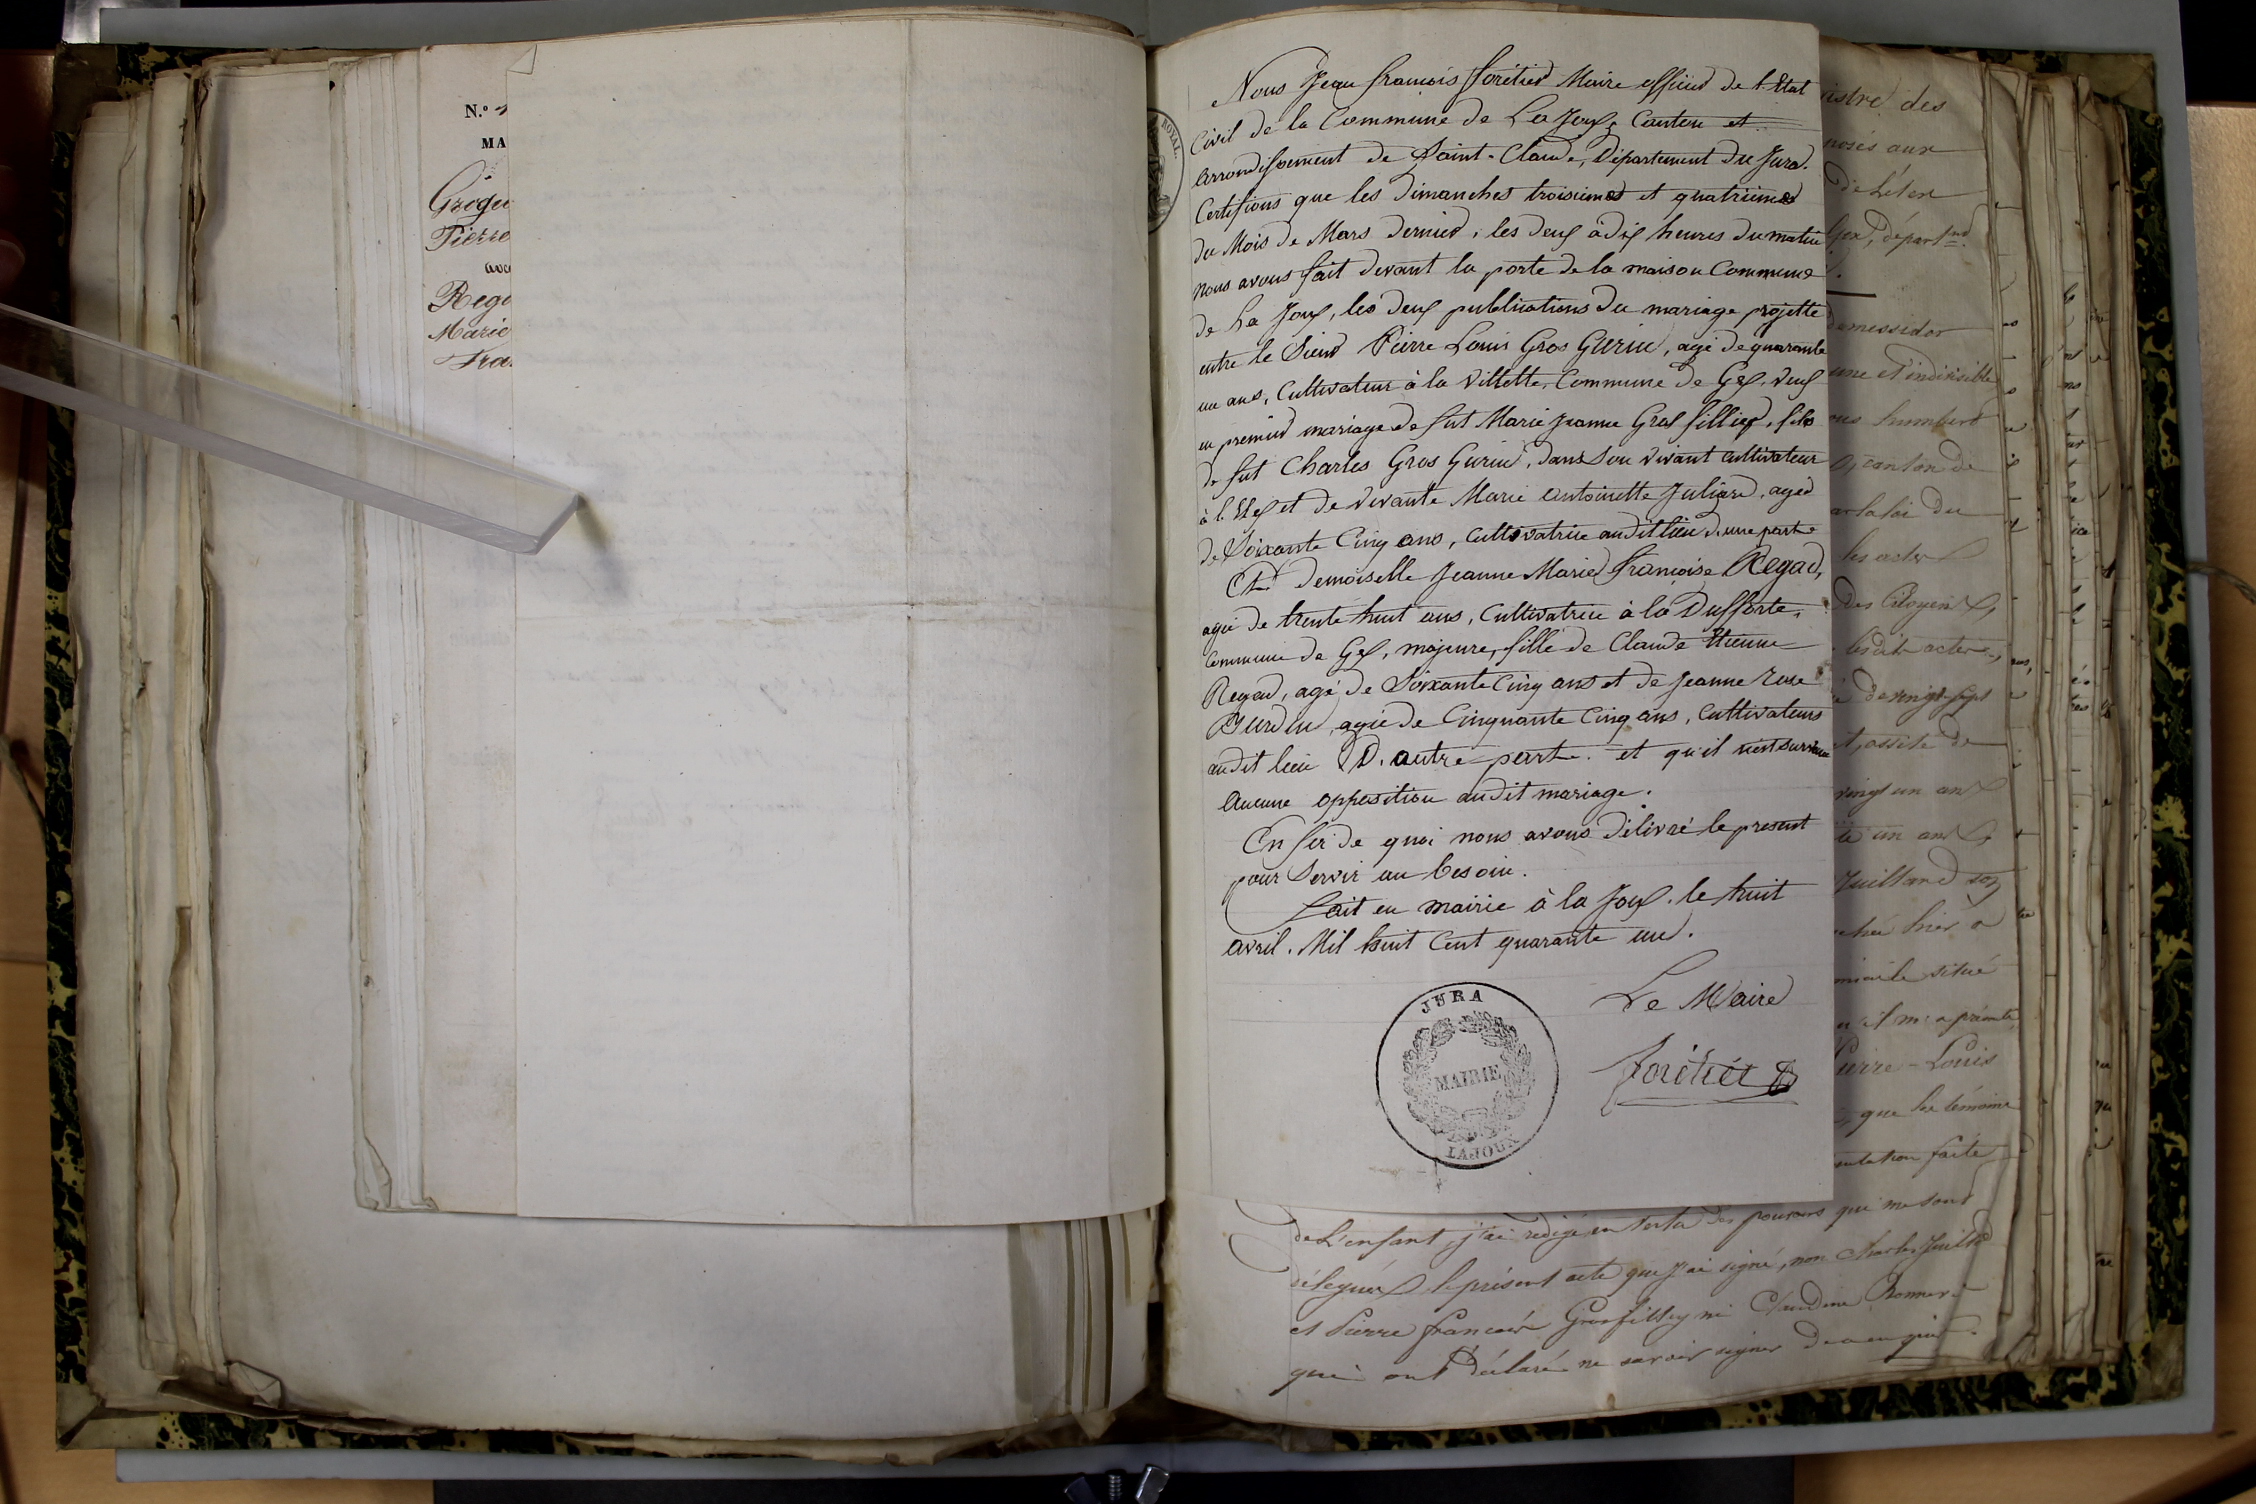 N.º
MA
Grogu
Pierre
ave
Rega
Marie
Fra
ROYAL
Nous Jean françois forétier Maire officier de l'Etat
Civil de la Commune de La Joux, Canton et
arrondissement de Saint-Claude, Département du Jura.
Certifions que les dimanches troisieme et quatrieme
du Mois de Mars dernier, les deux à dix heures du matin
nous avons fait devant la porte de la maison Commune
de La Joux, les deux publications du mariage projetté
entre le Sieur Pierre Louis Gros Gurin, agé de quarante
un ans, Cultivateur à la Villette, Commune de Gex, veuf
en premier mariage de fut Marie Jeanne Gros filliex, fils
de fut Charles Gros Gurin, dans son vivant cultivateur
à l'Elex et de vivante Marie Antoinette Juliard, agée
de Soixante Cinq ans, Cultivatrice audit lieu d'une part
Et demoiselle Jeanne Marie françoise Regad,
agée de trente huit ans, Cultivatrice à la Dufforte,
Commune de Gex, majeure, fille de Claude Etienne
Regad, agé de Soixante Cinq ans et de Jeanne Rose
Burdin, agée de Cinquante Cinq ans, Cultivateurs
audit lieu D'autre part. et qu'il n'est survenu
Aucune opposition audit mariage.
En foi de quoi nous avons délivré le present
pour Servir au besoin.
Fait en mairie à la Joux, le huit
avril. Mil huit Cent quarante un.
Le Maire
forétier
JURA
MAIRIE
LAJOUX
istre des
posés aux
de Lelex
Gex, depart
messidor
une et indivisible
humbert
canton de
par la loi du
les actes
des Citoyens
lesdits actes
de vingt sept
assité de
vingt un ans
un ans
Juilland
hier a
micile situé
il m'a présenté
Pierre-Louis
que les témoins
sentation faite
de L'enfant, j'ai redigé en vertu des pouvoirs qui me sont
délegués le présent acte que j'ai signé, non Charles Juilld
et Pierre francois Grosfilley ni Claudine
qui ont déclaré ne savoir signer de ce enquis